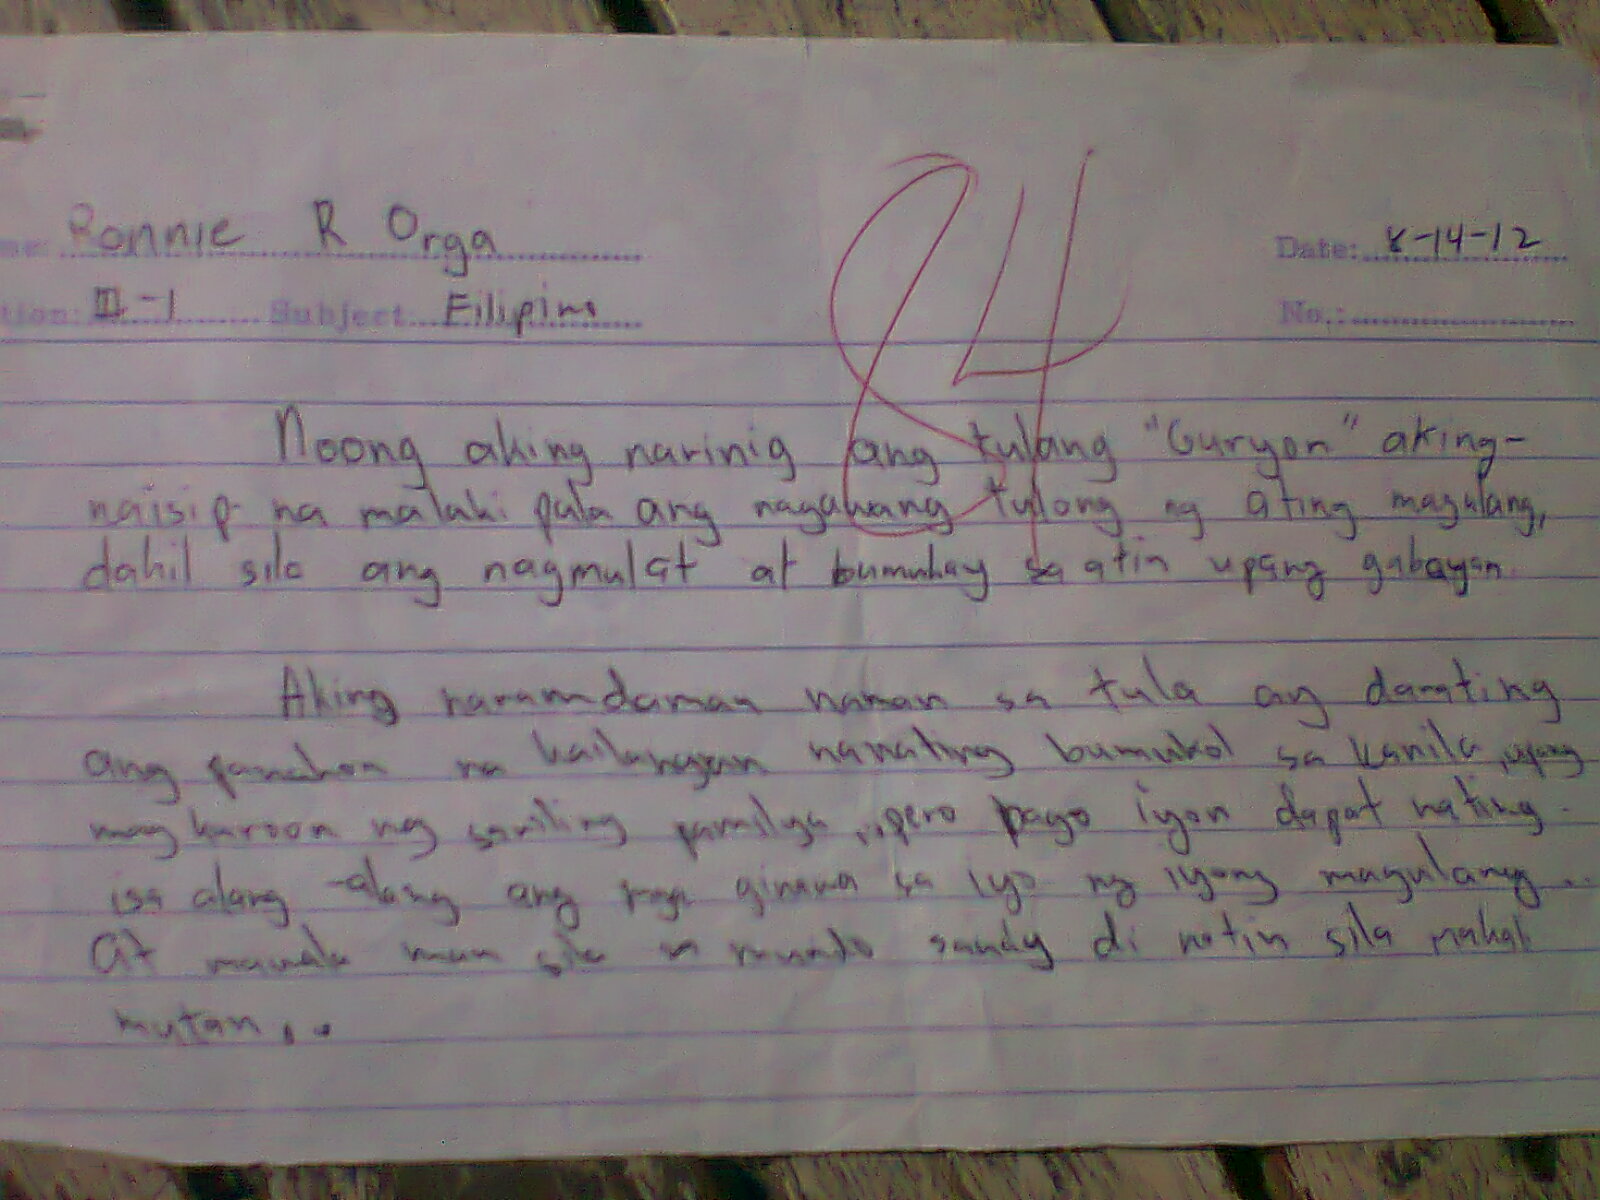 84
Ronnie R Orga Date: 8-14-12
III-1 Subject: Filipino No.:
Noong aking narinig ang tulang "Guryon" aking-
naisip na malaki pala ang nagawang tulong ng ating magulang,
dahil sila ang nagmulat at bumuhay sa atin upang gabayan.
Aking naramdaman naman sa tula ay darating
ang panahon na kailangan nanating bumukol sa kanila, upang
magkaroon ng sariling pamilya,..pero bago iyon dapat nating-
isa alang-alang ang mga ginawa sa iyo ng iyong magulang...
At mawala man sila sa mundo sanay di natin sila makali
mutan...